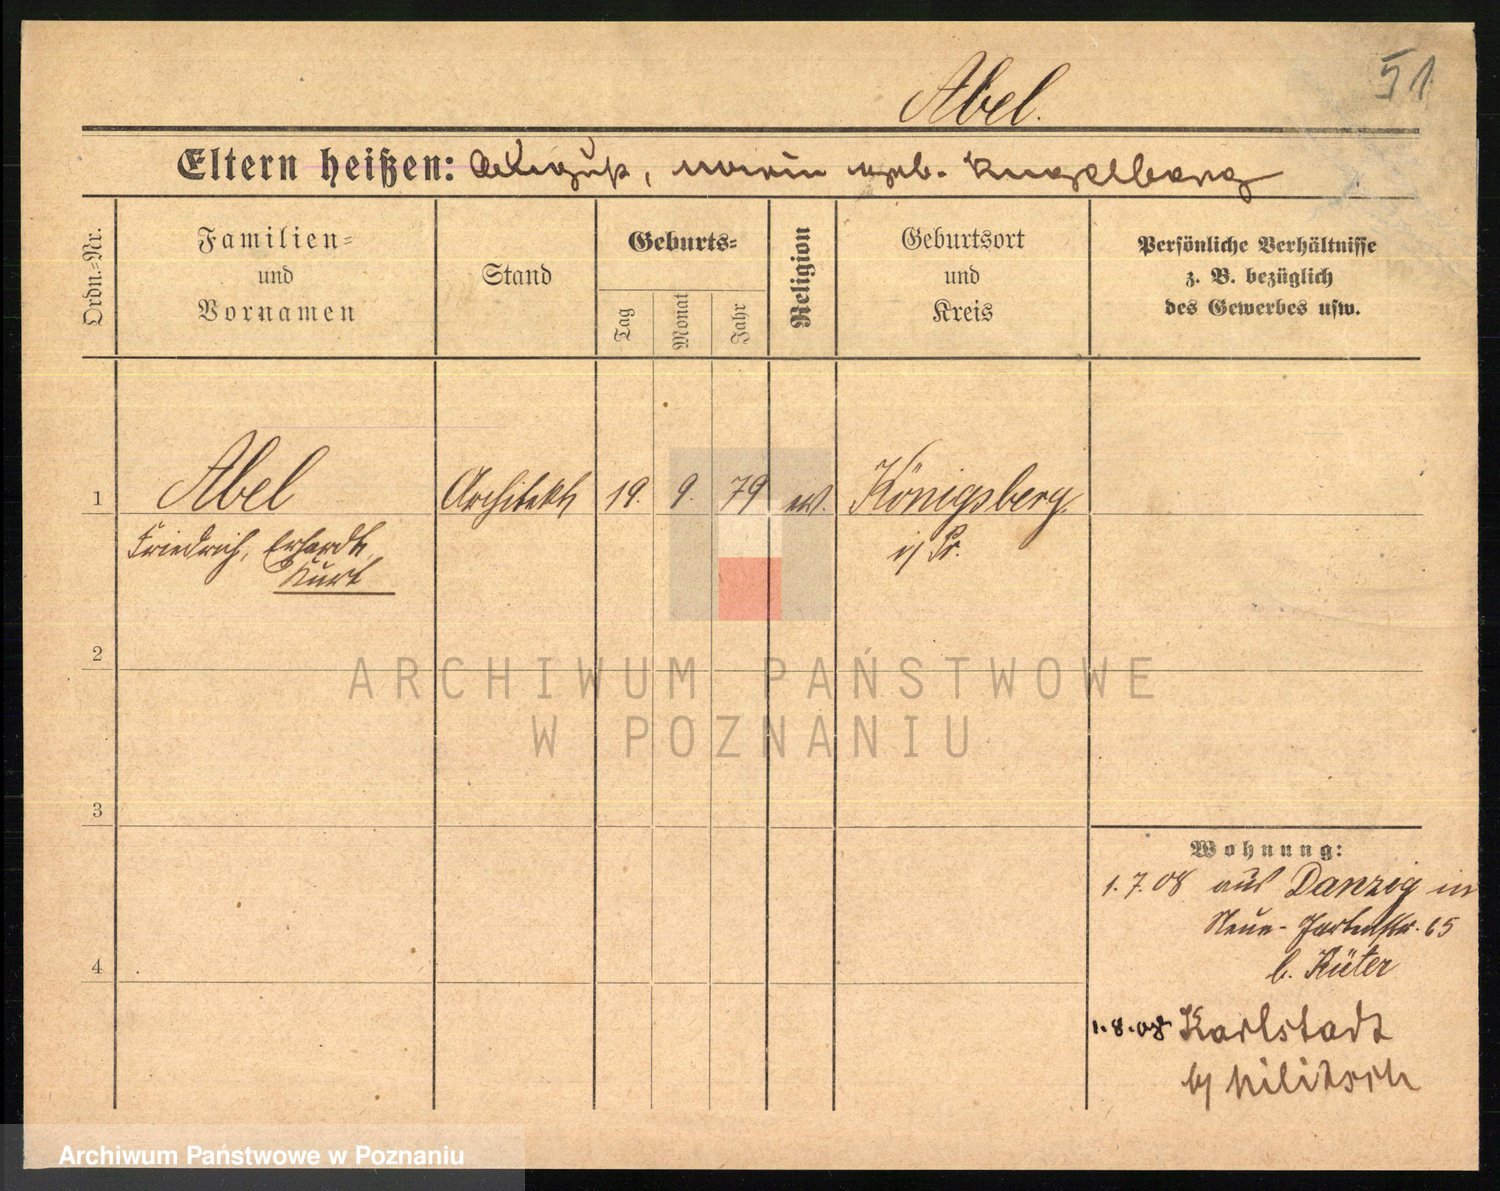 51
Abel.
Eltern heißen: August, Maria geb. Kugelberg
Ordn.=Nr.
Familien=
und
Vornamen
Stand
Geburts=
Tag
Monat
Jahr
Religion
Geburtsort
und
Kreis
Persönliche Verhältnisse
z. B. bezüglich
des Gewerbes usw.
1 Abel Architekt 19. 9. 79 ev. Königsberg
Friedrich, Erhardt, i/Pr.
Kurt
2
3
4
Wohnung:
1.7.08 aus Danzig in
Neue-Gartenstr. 65
b. Rüter
1.8.08 Karlstadt
b/ Militsch
ARCHIWUM PAŃSTWOWE
W POZNANIU
Archiwum Państwowe w Poznaniu